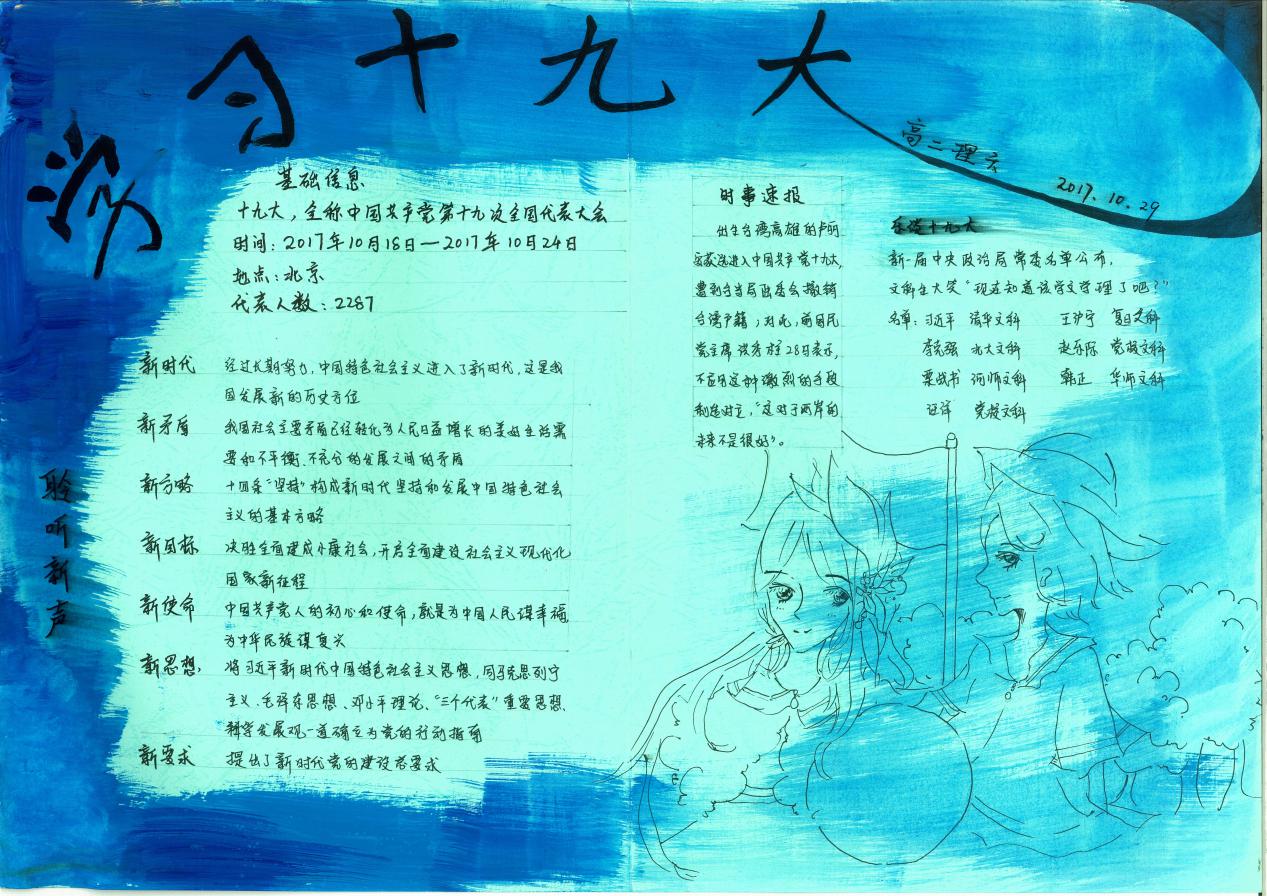 学习十九大
高二理六
2017.10.29
聆听新声
基础信息
十九大，全称中国共产党第十九次全国代表大会
时间：2017年10月18日—2017年10月24日
地点：北京
代表人数：2287
新时代
经过长期努力，中国特色社会主义进入了新时代，这是我
国发展新的历史方位
新矛盾
我国社会主要矛盾已经转化为人民日益增长的美好生活需
要和不平衡、不充分的发展之间的矛盾
新方略
十四条“坚持”构成新时代坚持和发展中国特色社会
主义的基本方略
新目标
决胜全面建成小康社会，开启全面建设社会主义现代化
国家新征程
新使命
中国共产党人的初心和使命，就是为中国人民谋幸福，
为中华民族谋复兴
新思想
将习近平新时代中国特色社会主义思想，同马克思列宁
主义、毛泽东思想、邓小平理论、“三个代表”重要思想、
科学发展观一道确立为党的行动指南
新要求
提出了新时代党的建设总要求
时事速报
出生台湾高雄的卢丽
安获选进入中国共产党十九大，
遭到台当局陆委会撤销
台湾户籍；对此，前国民
党主席洪秀柱28日表示，
不应用这种激烈的手段
制造对立，“这对于两岸的
未来不是很好”。
乐谈十九大
新一届中央政治局常委名单公布，
文科生大笑“现在知道该学文学理了吧？”
名单：习近平 清华文科 王沪宁 复旦文科
李克强 北大文科 赵乐际 党校文科
栗战书 河师文科 韩正 华师文科
汪洋 党校文科